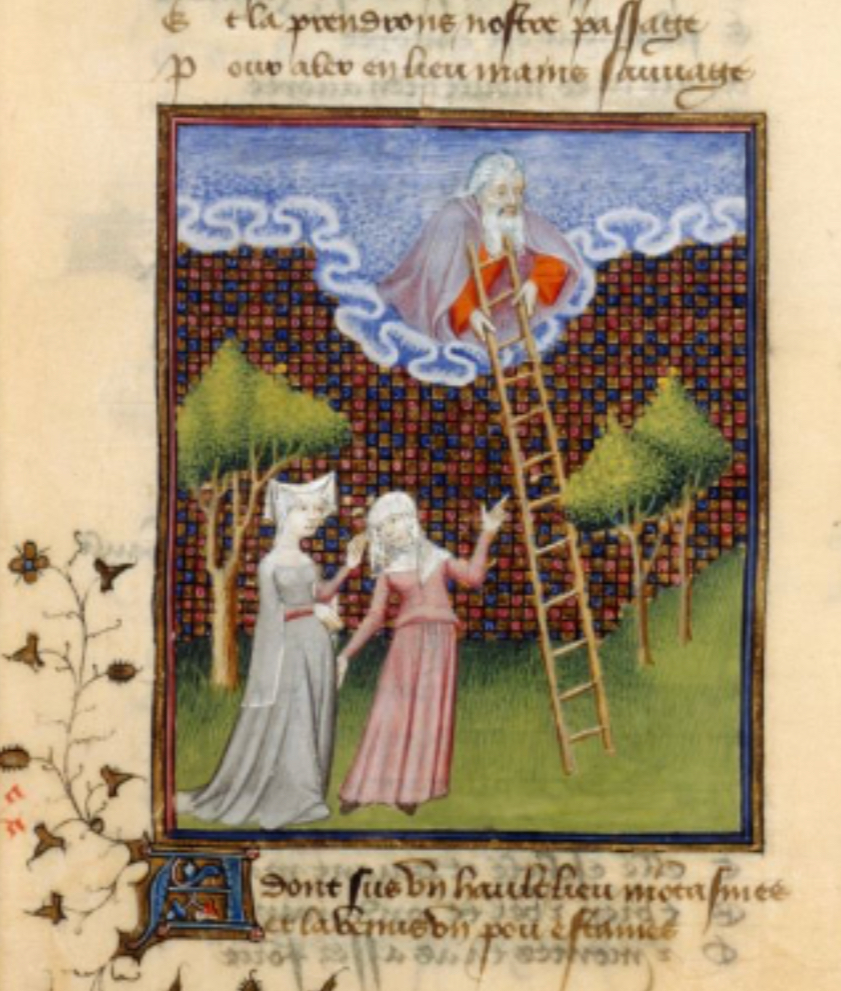 E t la prendrons nostre passage
P our aler en lieu moins sauuage
A dont sus vn hault lieu montasmes
et la venus vn pou estames